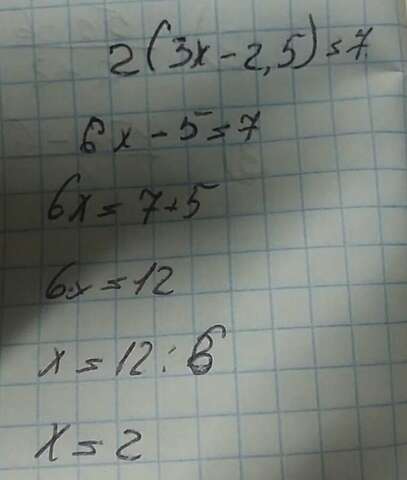 2(3x-2,5)=7
6x-5=7
6x=7+5
6x=12
x=12:6
x=2